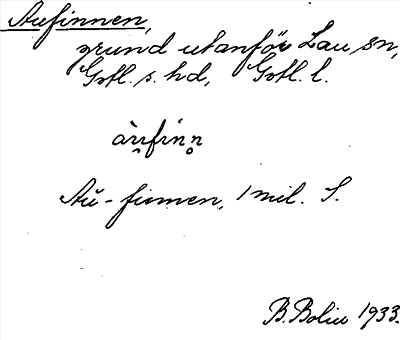 Aufinnen,
grund utanför Lau sn,
Gotl. s. hd, Gotl. l.
àu̯fìnn̥
Aŭ-finnen, 1 mil. S.
B. Bolin 1933.